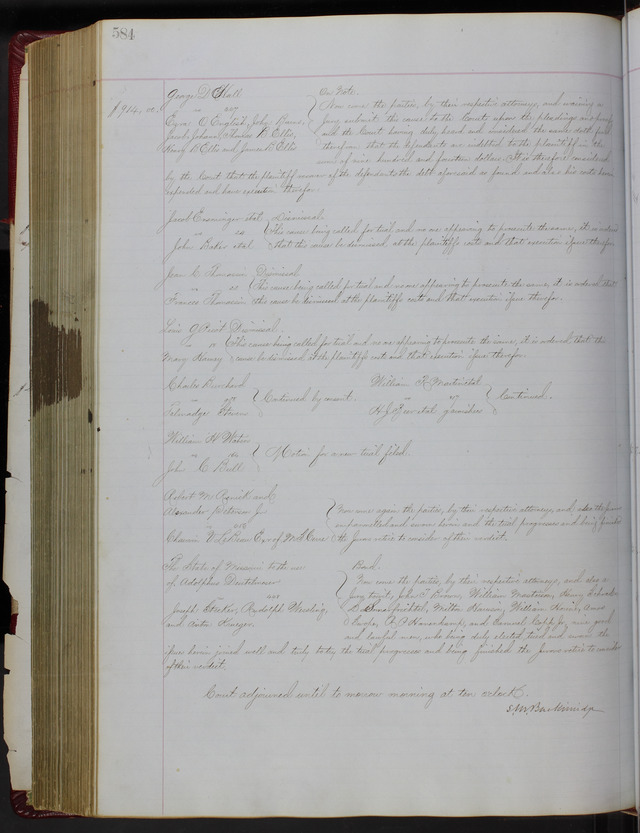 584
George D. Hall On Note.
$914, 00. " vs } Now come the parties, by their respective attorneys, and waiving a
Ezra O English, John Burns, jury submit this cause to the Court upon the pleadings and proofs
Jacob Johnson, Thomas R Ellis, and the Court having duly heard and considered the same doth find
Henry B Ellis and James B Ellis therefore that the defendants are indebted to the plaintiff in the
sum of nine hundred and fourteen dollars. It is therefore considered
by the Court that the plaintiff recover of the defendants the debt aforesaid so found and also his costs herein
expended and have execution therefor.
Jacob et al. Dismissal.
" vs } This cause being called for trial and no one appearing to prosecute the same, it is ordered
John Baker et al. that this cause be dismissed at the plaintiffs costs and that execution issue therefor.
Jean L. Dismissal
" vs } This cause being called for trial and no one appearing to prosecute the same, it is ordered that
Frances this cause be dismissed at the plaintiffs costs and that execution issue therefor.
Dismissal.
" vs } This cause being called for trial and no one appearing to prosecute the same, it is ordered that this
Mary cause be dismissed at the plaintiffs costs and that execution issue therefor.
Charles William R. et al
" vs } Continued by consent. " vs } Continued.
Talmadge et al garnishee
William H
" vs } Motion for a new trial filed.
John C. Bull
Robert M. and
Alexander Peterson Jr } Now come again the parties, by their respective attorneys, and also the jurors
" vs empannelled and sworn herein and the trial progresses and being finished
Exr of the Jurors retire to consider of their verdict.
The State of Missouri to the use Bond.
of Adolphus } Now come the parties, by their respective attorneys, and also a
vs Jury to wit, John T. William Henry
Joseph Rudolph William
and Anton Krueger. and Samuel good
and lawful men, who being duly elected tried and sworn the
issues herein joined well and truly to try the trial progresses and being finished the Jurors retire to consider
of their verdict.
Court adjourned until to morrow morning at ten o'clock.
S. M. Breckinridge